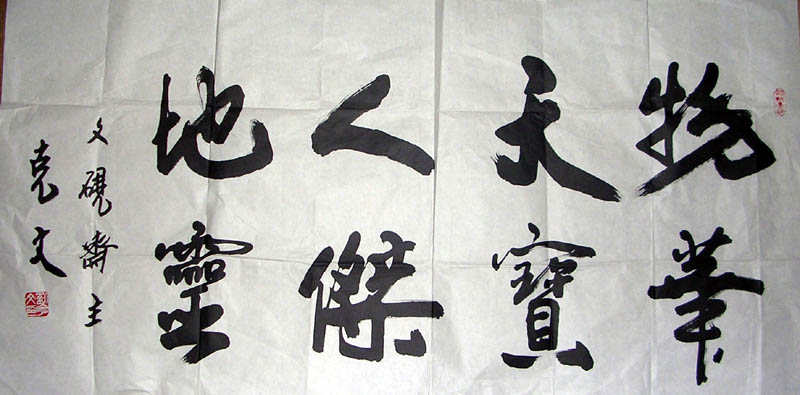 物華
天寶
人傑
地靈
文硯齋主
克文